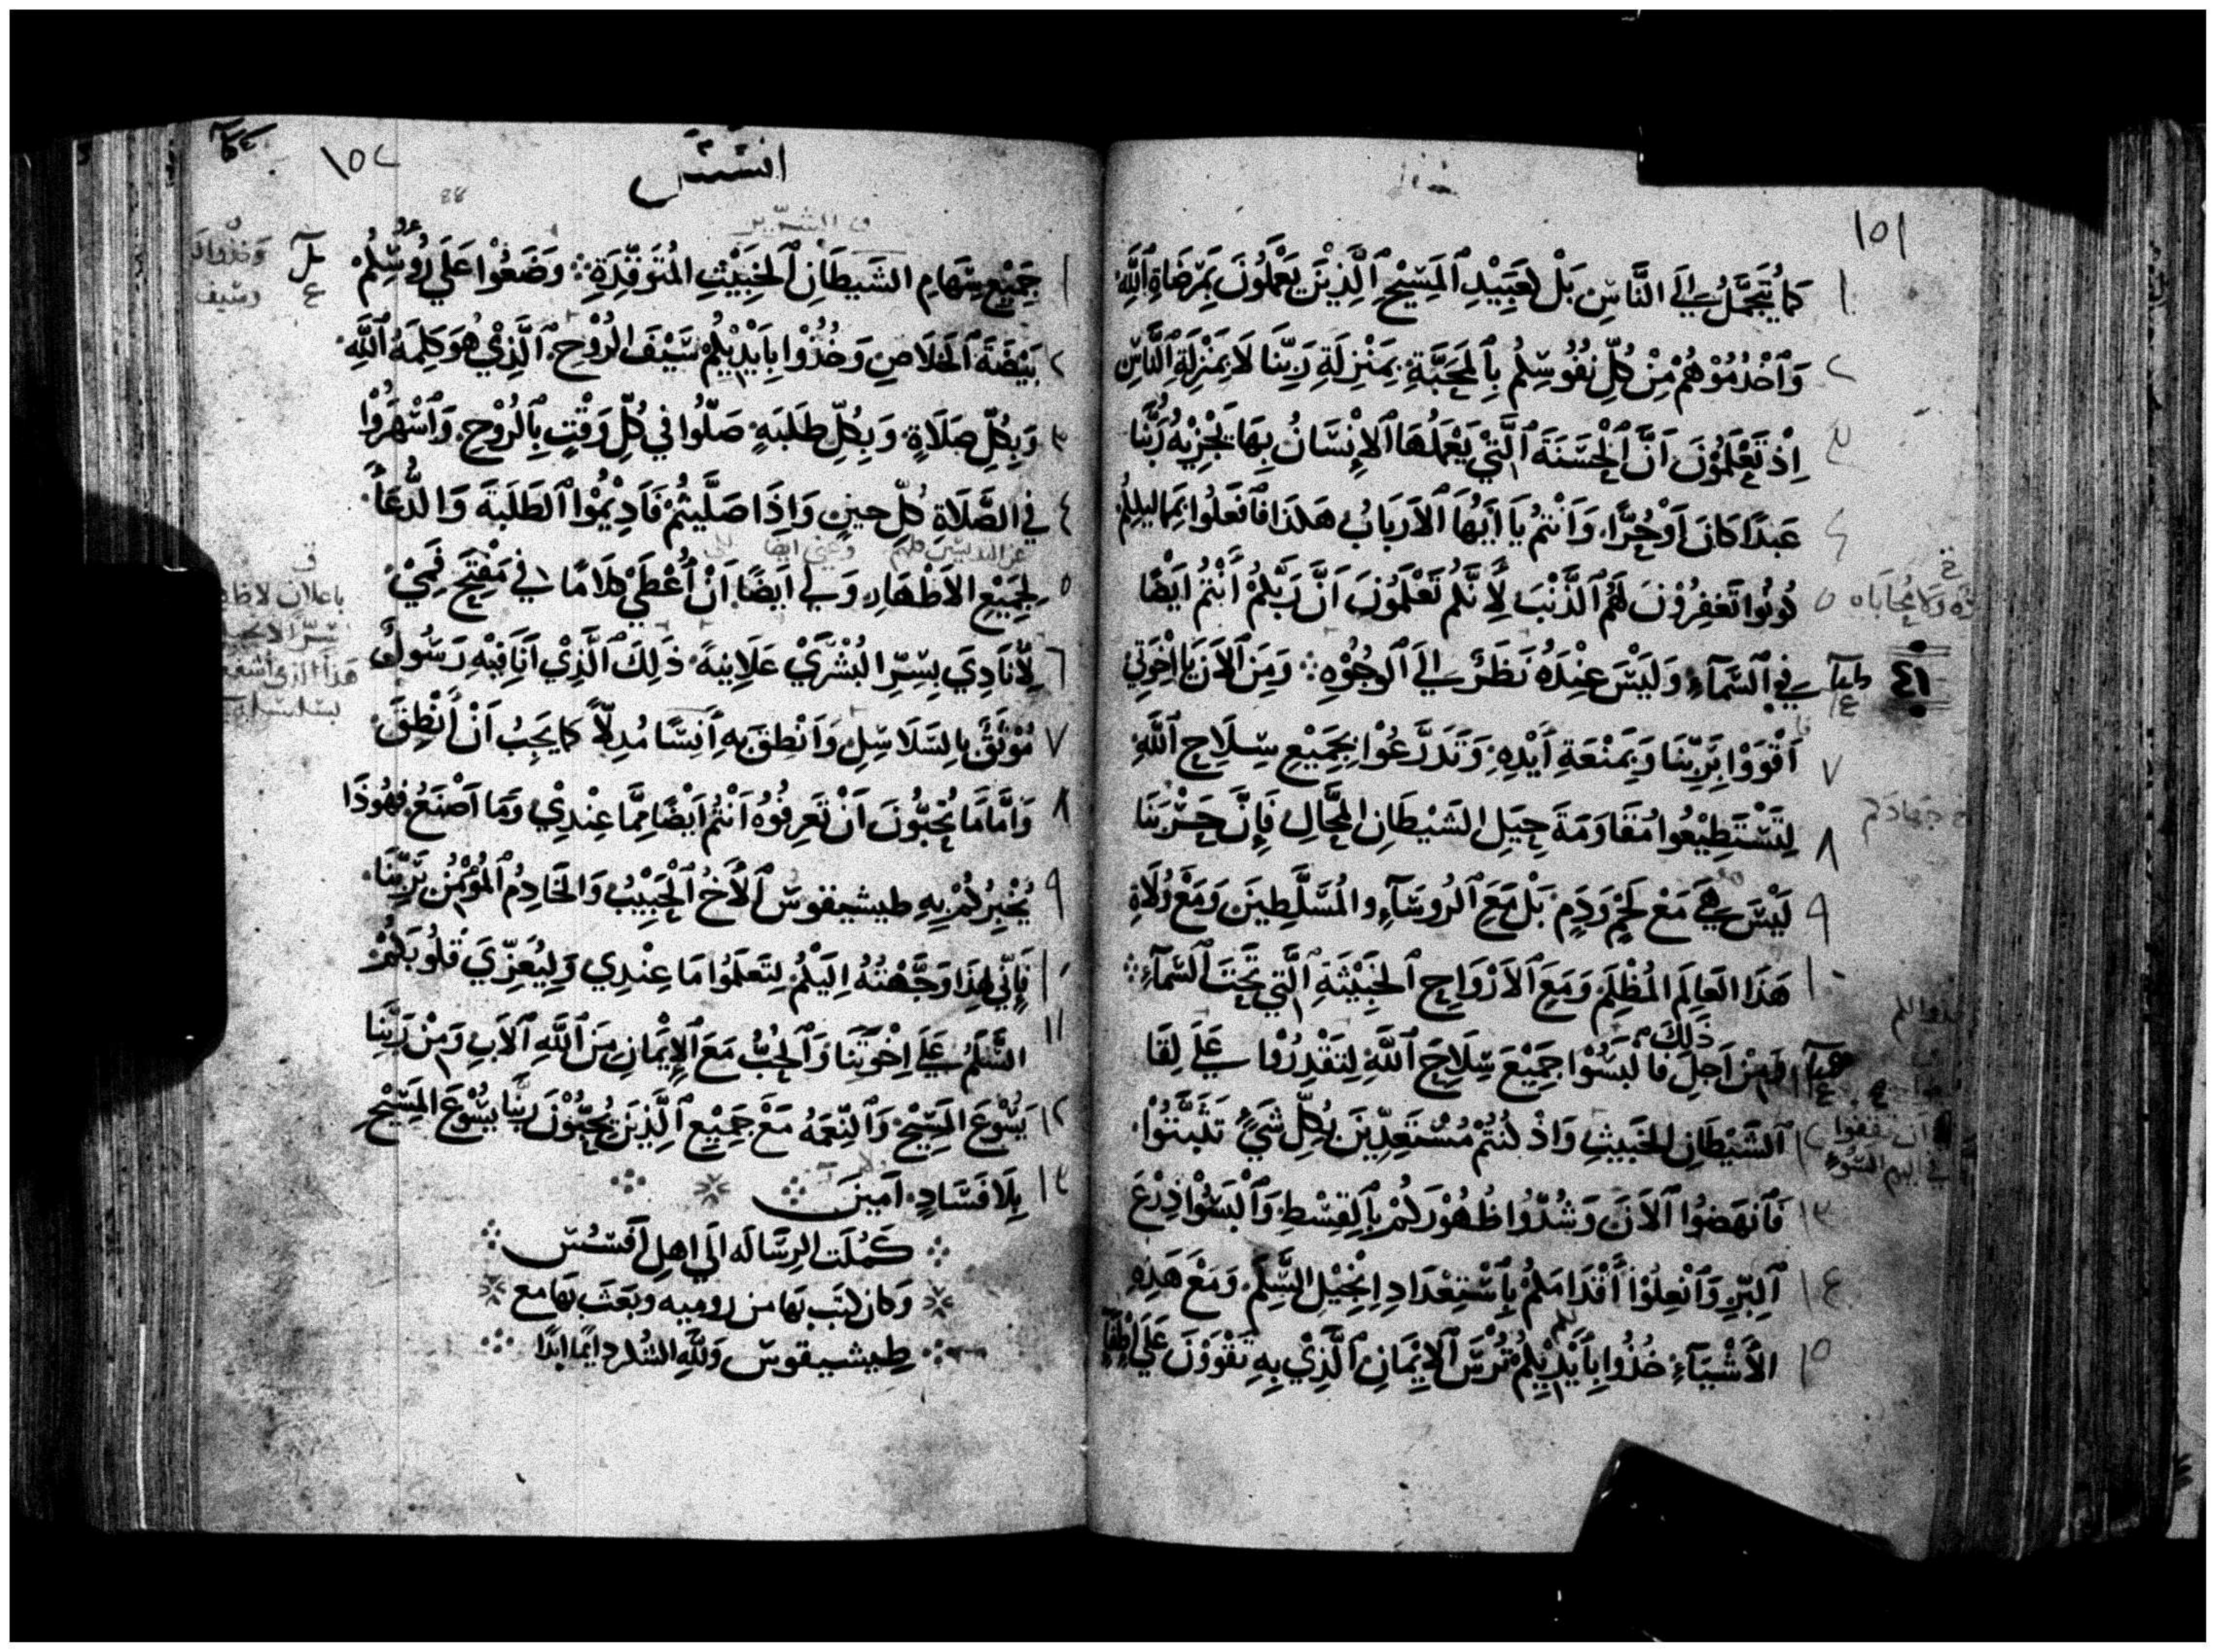 ١٥١
١ كَمَا يُتَجَمَّلُ اِلَى النَّاسِ بَلْ كَعَبِيْدِ ٱلمَسِيْحِ ٱلَّذِيْنَ يَعْمَلُوْنَ بِمَرْضَاةِ ٱللَّهِ
٢ وَٱخْدُمُوْهُمْ مِنْ كُلِّ نُفُوْسِكُمْ بِٱلمَحَبَّةِ بِمَنْزِلَةِ رَبِّنَا لَا بِمَنْزِلَةِ ٱلنَّاسِ
٣ اِذْ تَعْلَمُوْنَ اَنَّ ٱلْحَسَنَةَ ٱلَّتِيْ يَعْمَلُهَا ٱلاِنْسَانُ بِهَا يَجْزِيْهُ رَبُّنَا
٤ عَبدًا كَانَ اَوْ حُرًّا وَاَنْتُمْ يَا اَيُّهَا ٱلاَرْبَابُ هَكَذَا فَٱفعَلُوا بِمَمَاليككُمْ
٥ كُوْنُوا تَغفِرُوْنَ لَهُمُ ٱلذَّنْبَ لِأَنَّكُمْ تَعْلَمُوْنَ اَنَّ رَبَّكُمْ أَنْتُمْ اَيْضًا
فِي ٱلسَّمَآءِ وَلَيْسَ عِنْدَهُ نَظَرٌ اِلَى ٱلوُجُوْهِ وَمِنَ ٱلاَنَ يَا اِخْوَتِي
٧ اَقْوَوْا بِرَبِّنَا وَبِمَنْعَةِ اَيْدِهِ وَتَدَرَّعُوْا بِجَمِيْعِ سِلَاحِ ٱللَّهِ
٨ لِتَسْتَطِيْعُوا مُقَاوَمَةَ حِيَلِ الشَيْطَانِ المَحَّالِ فَإِنَّ حَرْبَنَا
٩ لَيْسَ هِيَ مَعْ لَحْمٍ وَدَمٍ بَلْ مَعَ ٱلرُوسَآءِ والمُسَلَّطِينَ وَمَعْ وُلَاةِ
١٠ هَذَا العَالَمِ المُظْلِمِ وَمَعَ ٱلاَرْوَاحِ ٱلخَبِيْثَةِ ٱلَّتِي تَحْتَ ٱلسَّمَآءِ
فَمِنْ اَجلِ ذَلِكَ فَالبَسُوْا جَمِيْعَ سِلَاحِ ٱللَّهِ لِتَقْدِرُوْا عَلَى لِقَا
١٢ ٱلشَيْطَانِ الخَبيثِ وَاذْ كُنتُمْ مُسْتَعِدِّيْنَ بِكُلِّ شَيْءٍ تَثَبَّتُوْا
١٣ فَٱنهَضُوْا ٱلاَنَ وَشُدُّوْا ظُهُوْرَكُمْ بِٱلقِسْطِ وَٱلْبَسُوْا دِرْعَ
١٤ ٱلبِّرِ وَٱنْعِلُوْا أَقْدَامَكُمْ بِٱسْتِعْدَادِ اِنْجِيْلِ السَّلِمِ وَمَعْ هَذِهِ
١٥ الأَشْيَآءِ خُذُوا بِأَيْدِيْكُمْ تُرْسَ ٱلاِيْمَانِ ٱلَّذِيْ بِهِ تَقْوَوْنَ عَلَى إِطْفَآءِ
١٥٢
افسس
١ جَمِيْعِ سِهَامِ الشَيطَانِ ٱلخَبِيْثِ المُتَوَقِّدَةِ وَضَعُوْا عَلَى رُوسِكُمْ
٢ بَيْضَةَ ٱلخَلَاصِ وَخُذُوْا بِاَيْدِيْكُمْ سَيْفَ الرُوْحِ ٱلَّذِيْ هُوَ كَلِمَةُ ٱللَّهِ
٣ وَبِكُلِّ صَلَاةٍ وَبِكُلِّ طَلَبَةٍ صَلُّوا فِي كُلِّ وَقْتٍ بِٱلرُوْحِ وَٱسْهَرُوْا
٤ فِي الصَّلَاةِ كُلَّ حينٍ وَاِذَا صَلَّيتُمْ فَاَدِيْمُوْا ٱلطَلَبَةَ وَالدُّعَآ
٥ لِجَمِيْعِ الاَطْهَارِ وَلِي اَيضًا اَنْ أُعْطَيْ كَلَامًا فِي مَفْتَحِ فَمِيْ
٦ لِأُنَادِيَ بِسِرِّ البُشْرَيْ عَلَانِيةً ذَلِكَ ٱلَّذِيْ اَنَا فِيْهِ رَسُولٌ
٧ مُوْثَقٌ بِالسَلَاسِلِ وَاَنْطِقَ بِهِ اَنِسًا مُدِلًّا كَمَا يَجِبُ اَنْ أَنْطِقَ
٨ وَاَمَّا مَا تُحِبُّونَ اَنْ تَعرِفُوْهُ اَنْتُمْ اَيْضًا مِمَّا عِنْدِيْ وَمَا اَصْنَعُ فهُوذَا
٩ يُخْبِرُكُمْ بِهِ طيشيقوسُ ٱلأَخُ ٱلْحَبِيْبُ وَالخَادِمُ ٱلمُؤْمِنُ بِرَبِّنَا
١٠ فَإِنِّي لِهَذَا وَجَّهْتُهُ اِلَيْكُمْ لِتَعلَمُوا مَا عِنْدِي وَلِيُعَزِّيَ قُلُوبَكُمْ
١١ السَّلَمُ عَلَى اِخْوَتِنَا وَٱلحُبُّ مَعَ ٱلاِيْمَانِ مِنَ ٱللَّهِ ٱلاَبِ وَمِنْ رَبِّنِا
١٢ يَسُوْعَ المَسِيْحِ وَٱلنِّعمَةُ مَعْ جَمِيْعِ ٱلَّذِيْنَ يُحِبُّوْنَ رَبَّنَا يَسُوْعَ المَسِيْحِ
١٣ بِلَا فَسَادٍ اَمِينَ
كَمُلَت الرِسَاله الَى اهلِ اَفسُسَ
وَكان كتَب بهَا من روميه وبَعَث بهَا مع
طِيشيقوسَ وَللَّهِ الشُكر دايمًا ابدًا